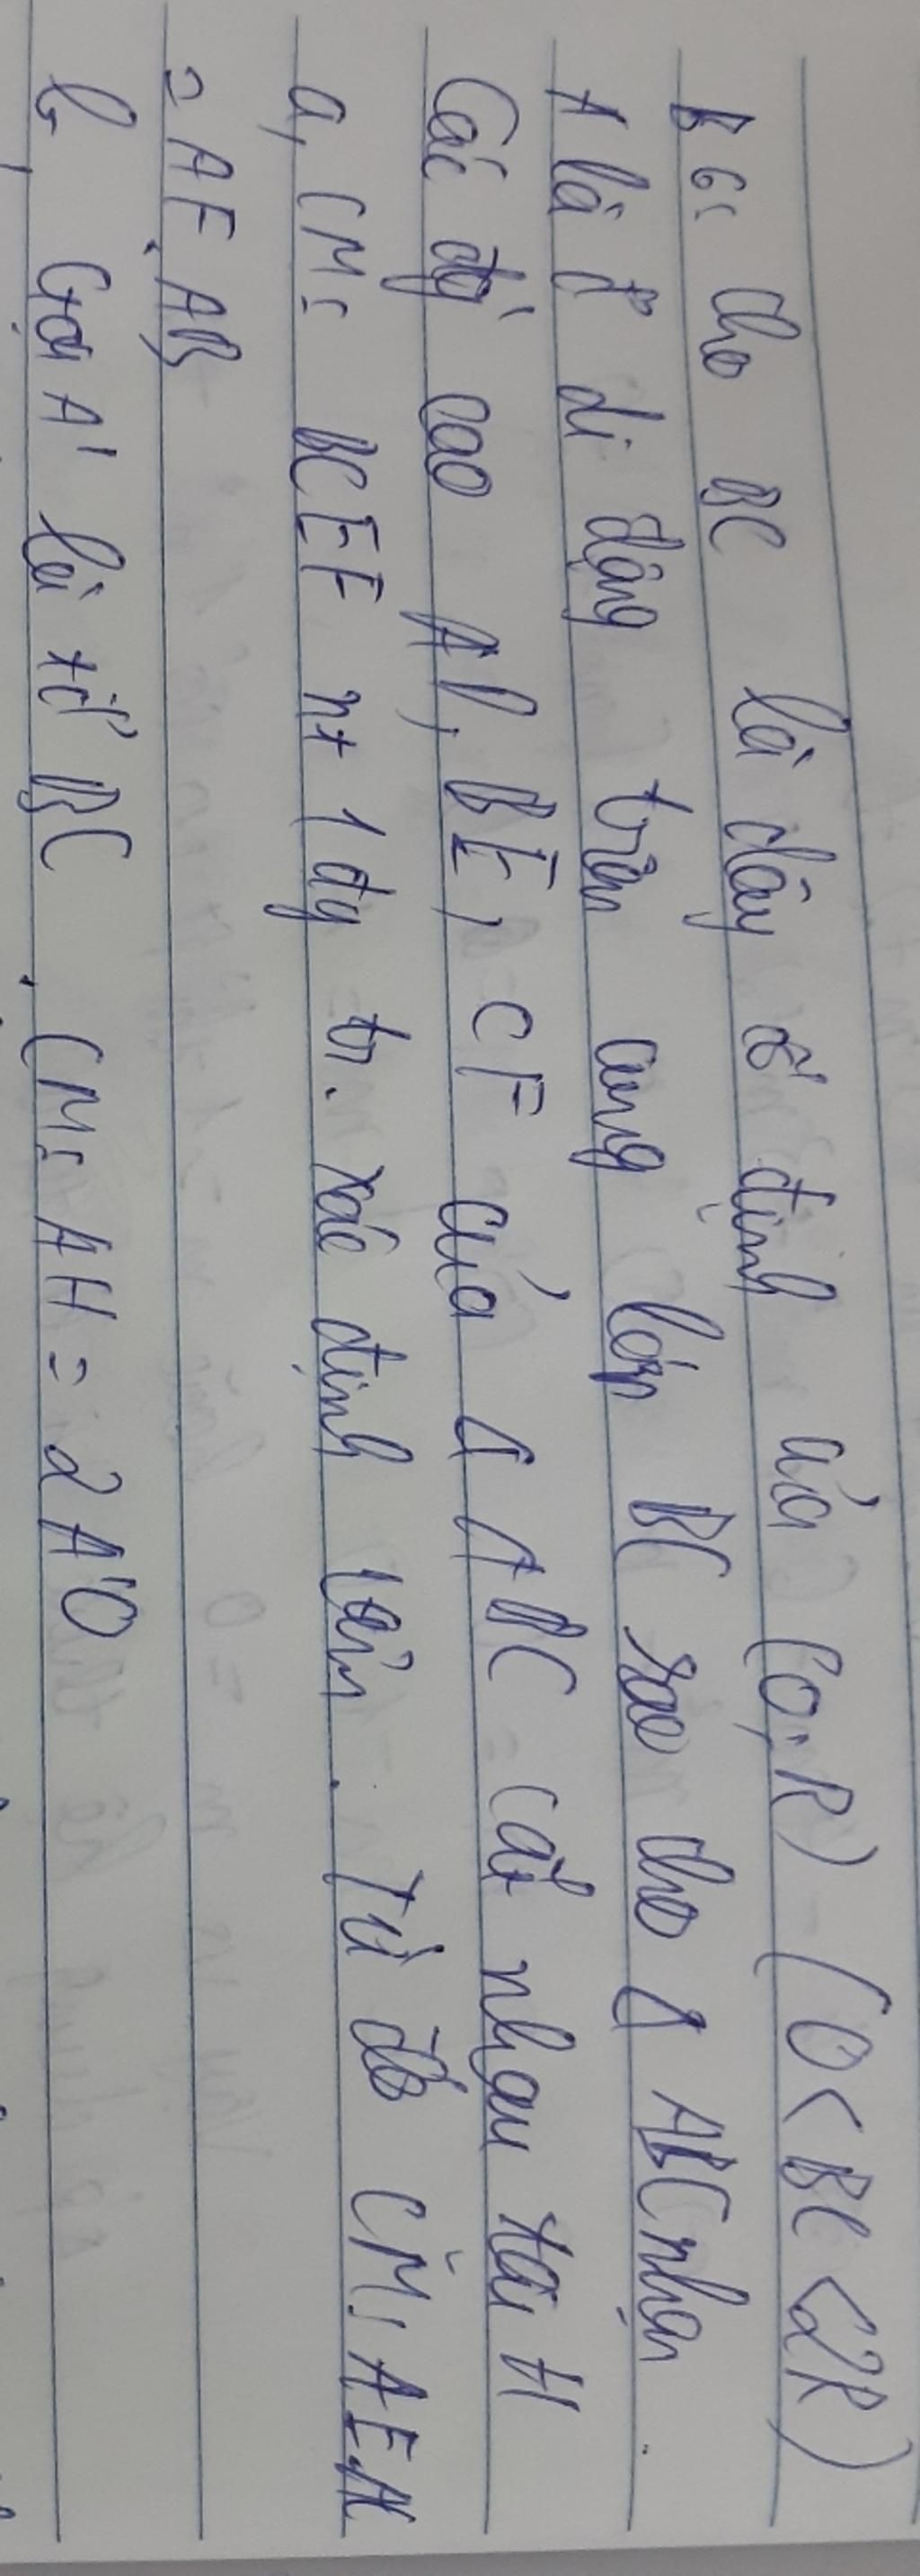 B6: Cho BC là dây cđ định của (O;R) (0<BC<2R)
A là đ' di động trên cung lớn BC sao cho Δ ABC nhọn.
Các đg' cao AD, BE, CF của Δ ABC cắt nhau tại H
a, CM: BCEF nt 1 đg tr. xác định tâm. Từ đó CM: AE.AC
= AF.AB
b, Gọi A' là tđ' BC. CM: AH = 2A'O